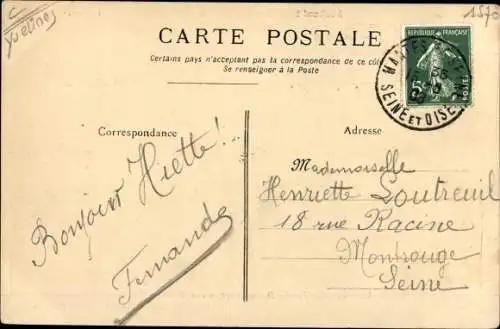 Yvelines
1570
CARTE POSTALE
Certains pays n'acceptant pas la correspondance de ce côté
Se renseigner à la Poste
REPUBLIQUE FRANÇAISE
5
POSTE
SEINE ET OISE
Correspondance
Adresse
Bonjour Hiette!
Fernande
Mademoiselle
Henriette Loutreuil
18 rue Racine
Montrouge
Seine